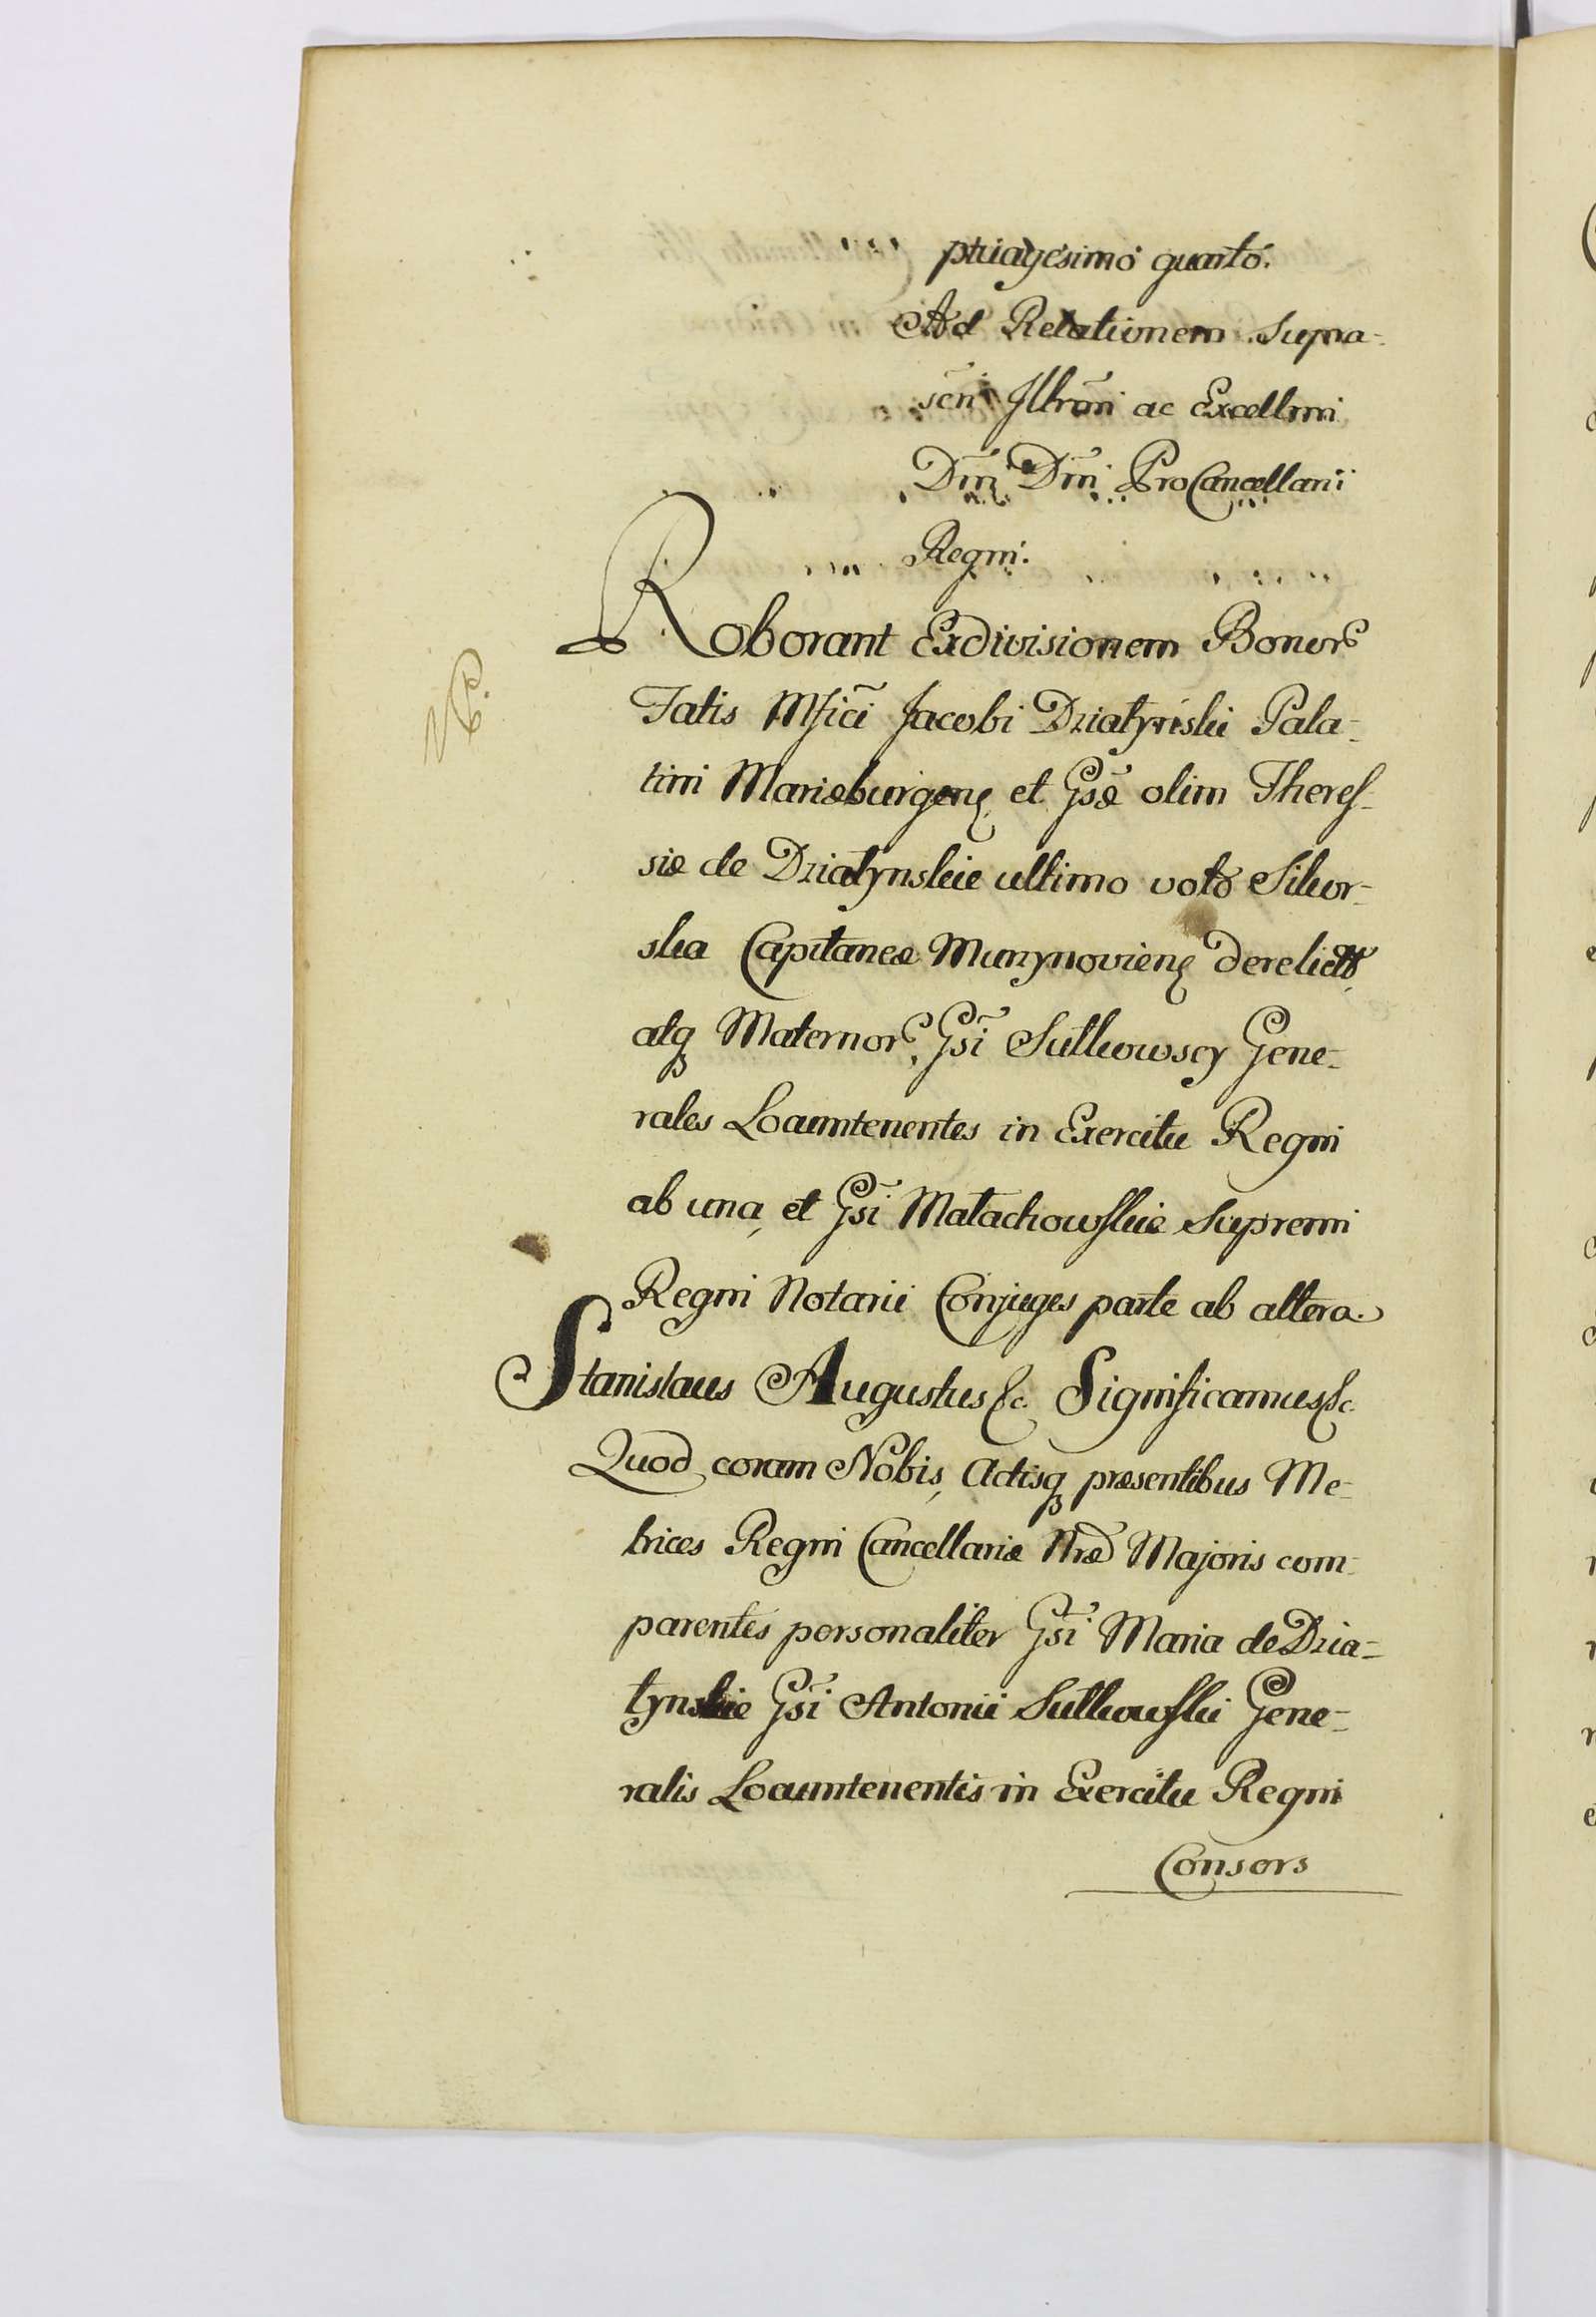 ptuagesimo quarto.
Ad Relationem Supra-
scri Illrmi ac Excellmi
Dni Dni ProCancellarii
Regni.
Roborant Exdivisionem Bonor
Fatis Mfici Jacobi Dziatyński Pala-
tini Mariæburgen et Gsæ olim Theres-
siæ de Dziatynskie ultimo voto Sikor-
ska Capitaneæ Murzynovien derelictæ
atq Maternor, Gsi Sulkowscy Gene-
rales Locumtenentes in Exercitu Regni
ab una, et Gsi Matachowskie Supremi
Regni Notarii Conjuges parte ab altera.
Stanislaus Augustus &c. Significamus &c.
Quod coram Nobis, Actisq præsentibus Me-
trices Regni Cancellariæ Nræ Majoris com-
parentes personaliter Gsi Maria de Dzia-
tynskie Gsi Antonii Sulkowski Gene-
ralis Locumtenentis in Exercitu Regni
Consors